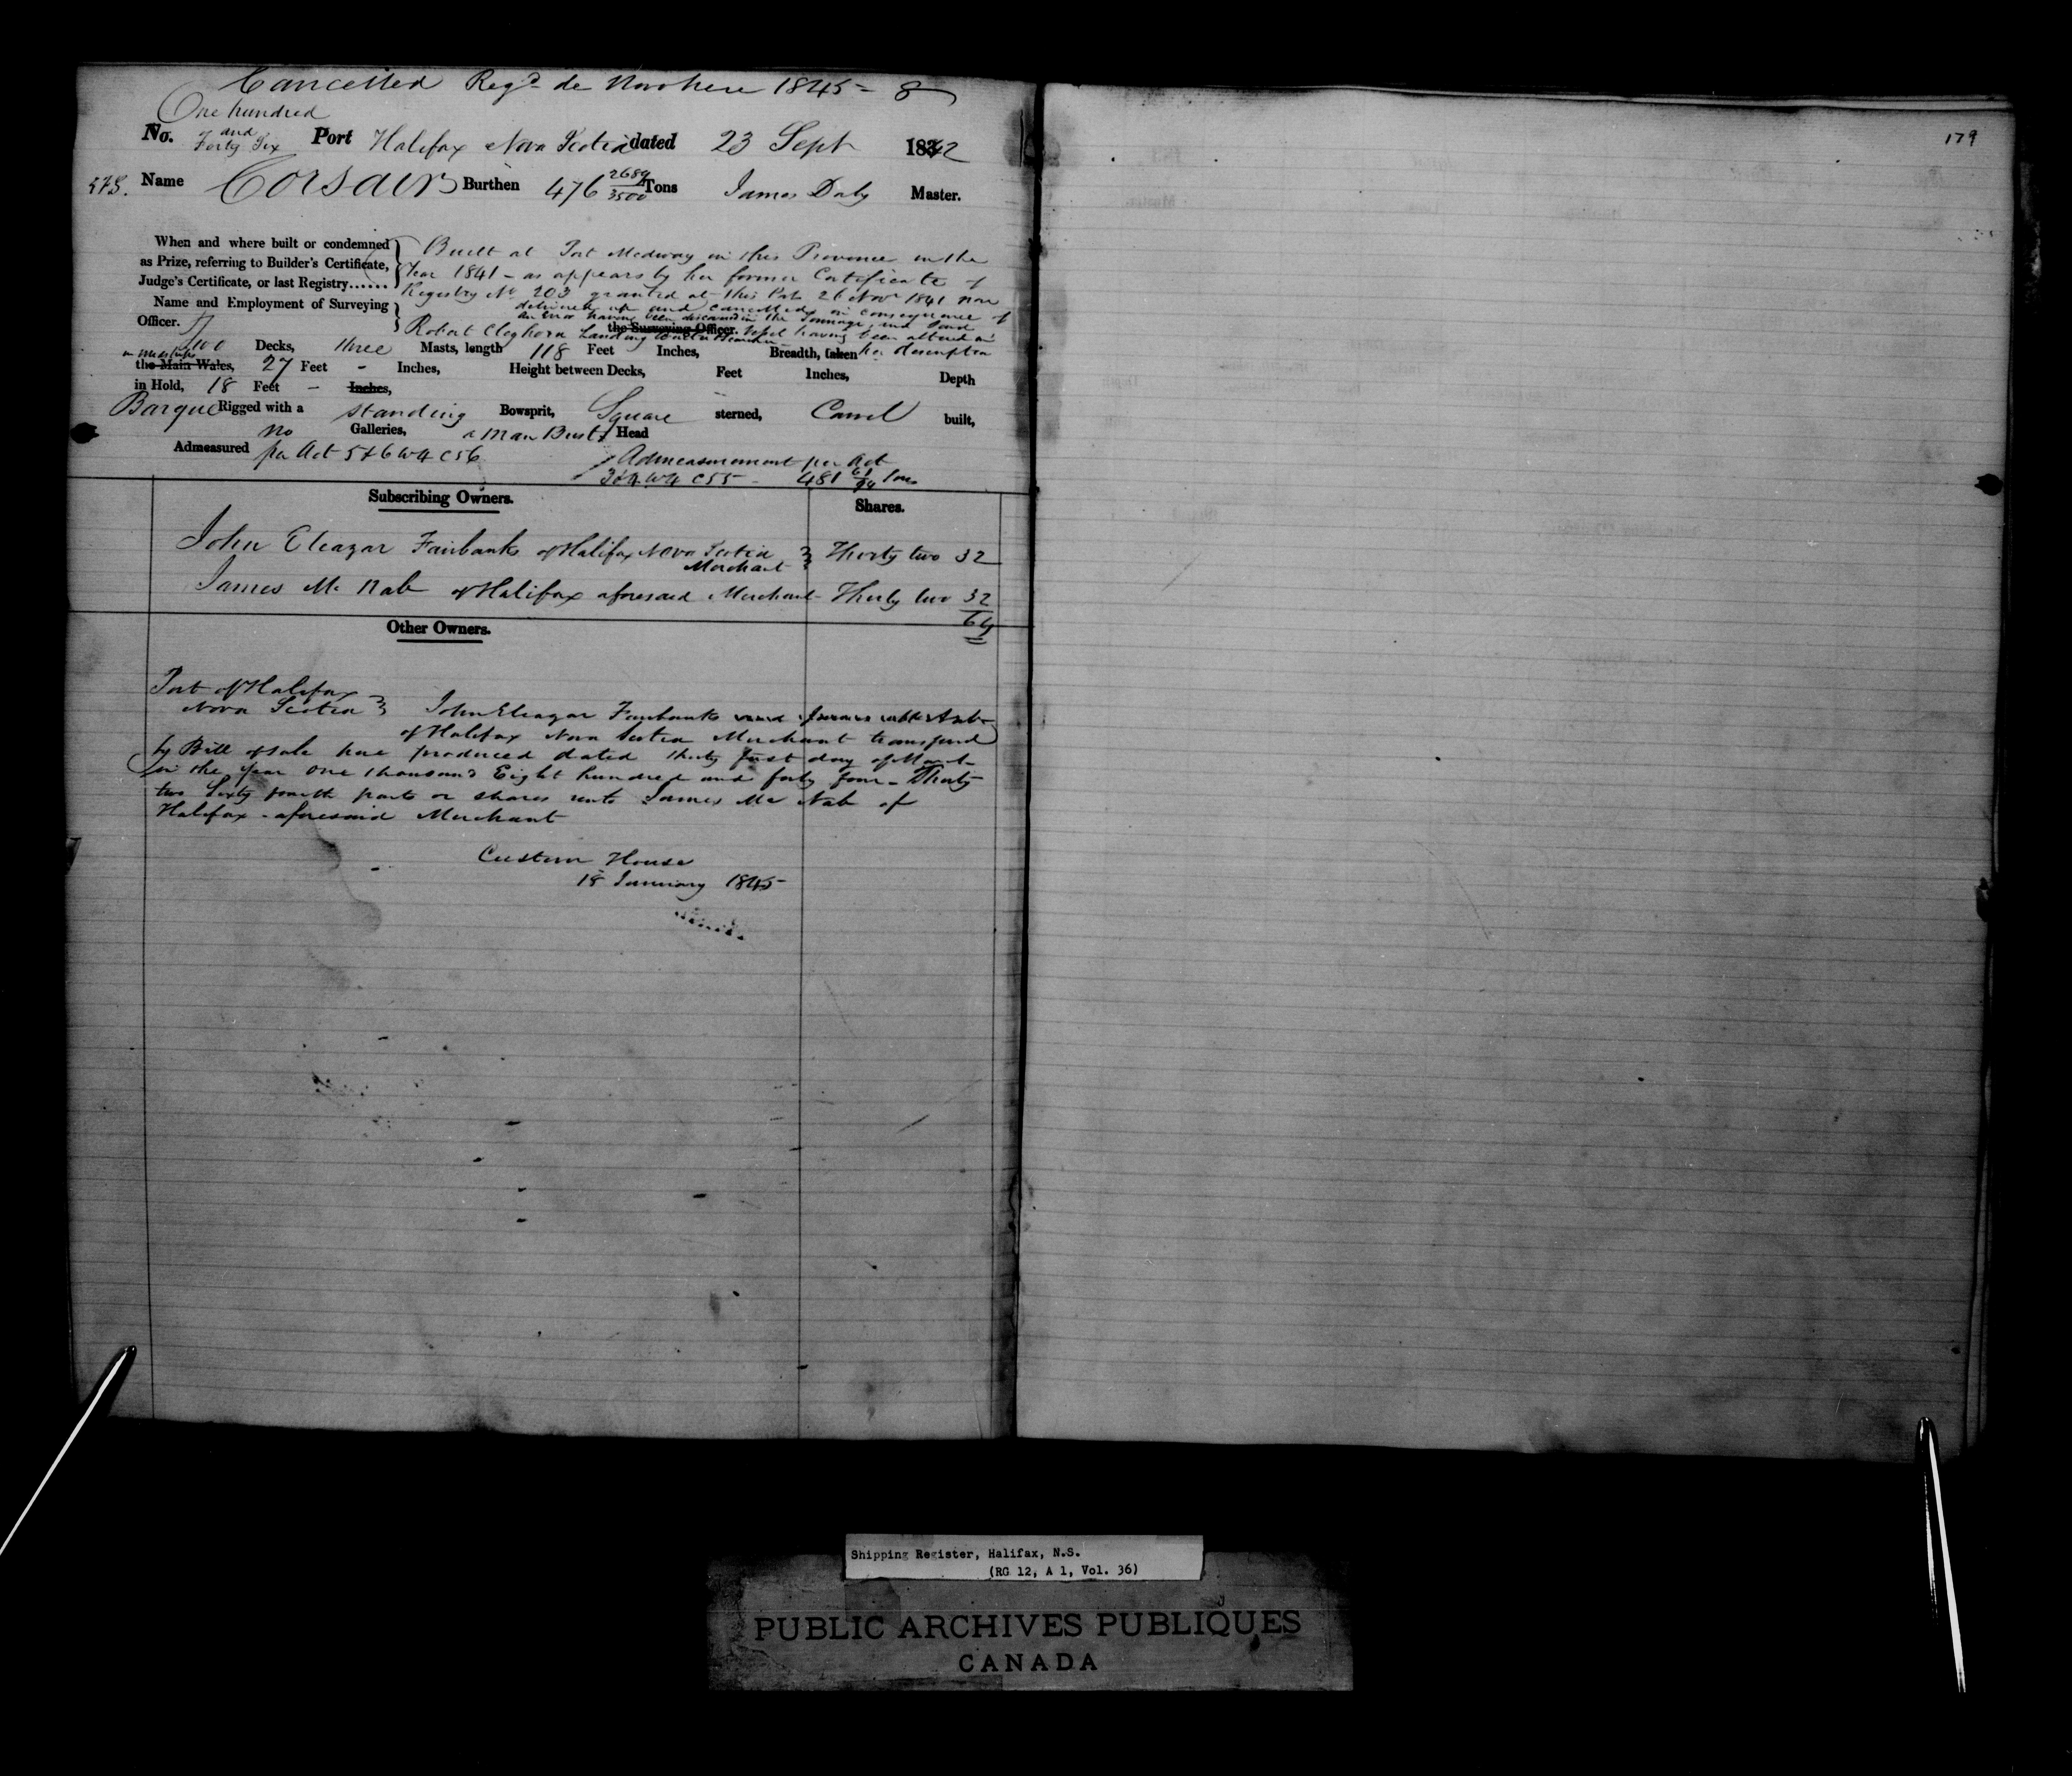 Cancelled Regd de Novo here 1845 = 8
One hundred
and
No. Forty Six Port Halifax Nova Scotia dated 23 Sept 1842
179
575. Name Corsair Burthen 476 2689/3500 Tons James Daly Master.
When and where built or condemned
as Prize, referring to Builder's Certificate,
Judge's Certificate, or last Registry......
Built at Port Medway in this Province in the
Year 1841 - as appears by her former Certificate of
Registry No 203 granted at this Port 26 Novr 1841 now
delivered up and cancelled in consequence of
an Error having been discovered in the Tonnage, and said
Name and Employment of Surveying
Officer.
Robert Cleghorn Landing Waiter the Surveying Officer. Vessel having been altered in
Two Decks, three Masts, length 118 Feet Inches, Breadth, taken her description
in midships
the Main Wales, 27 Feet - Inches, Height between Decks, Feet Inches, Depth
in Hold, 18 Feet - Inches,
Barque Rigged with a standing Bowsprit, Square sterned, Carvel built,
no Galleries, a Man Bust Head
Admeasured per Act 5 & 6 W 4 C 56
Admeasurement per Act
3 & 4 W 4 C 55 - 481 61/94 Tons
Subscribing Owners. Shares.
John Eleazar Fairbanks of Halifax Nova Scotia
Merchant Thirty two 32
James Mc Nab of Halifax aforesaid Merchant - Thirty two 32
64
Other Owners.
Port of Halifax
Nova Scotia John Eleazar Fairbanks
of Halifax Nova Scotia Merchant transferred
by Bill of Sale here produced dated thirty first day of
in the year One thousand Eight hundred and forty four - Thirty
two Sixty fourth parts or shares unto James Mc Nab of
Halifax - aforesaid Merchant
Custom House
18 January 1845 -
Shipping Register, Halifax, N.S.
(RG 12, A 1, Vol. 36)
PUBLIC ARCHIVES PUBLIQUES
CANADA